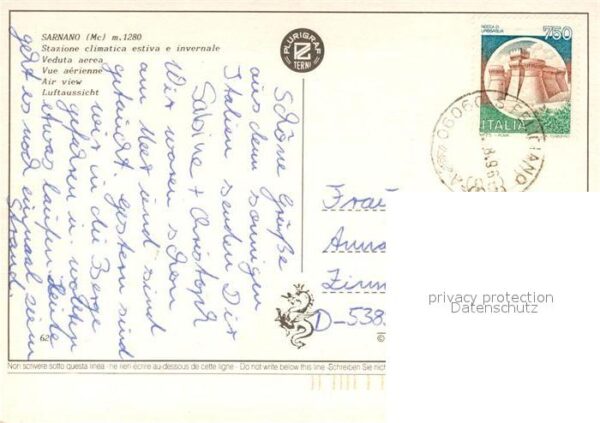 SARNANO (Mc) m.1280
Stazione climatica estiva e invernale
Veduta aerea
Vue aérienne
Air view
Luftaussicht
PLURIGRAF
TERNI
ROCCA DI
URBISAGLIA
750
ITALIA
06060
Schöne Grüße
aus dem sonnigen
Italien senden Dir
Sabine + Christoph
Wir waren schon
am Meer und sind
getaucht. Gestern sind
wir in die Berge
gefahren u. wollen
etwas laufen. Heute
geht es noch einmal zum
Strand.
Frau
Anna
D-538
privacy protection
Datenschutz
62
©
Non scrivere sotto questa linea - ne rien écrire au-dessous de cette ligne - Do not write below this line - Schreiben Sie nich